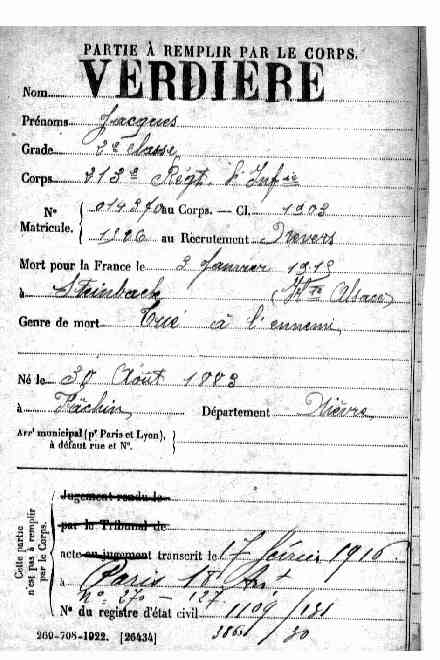 PARTIE À REMPLIR PAR LE CORPS.
Nom VERDIÈRE
Prénoms Jacques
Grade 2e classe
Corps 213e Régt d'Infie
No Matricule. 014370 au Corps. — Cl. 1903
1226 au Recrutement Nevers
Mort pour la France le 3 Janvier 1915
à Steinbach (Hte Alsace)
Genre de mort Tué à l'ennemi
Né le 30 Août 1883
à Fâchin Département Nièvre
Arrt municipal (pr Paris et Lyon), à défaut rue et No.
Cette partie n'est pas à remplir par le Corps.
Jugement rendu le
par le Tribunal de
acte ou jugement transcrit le 17 février 1916
à Paris
No 270 — 127
No du registre d'état civil 1109/131
386 / 30
260-708-1922. [26434]